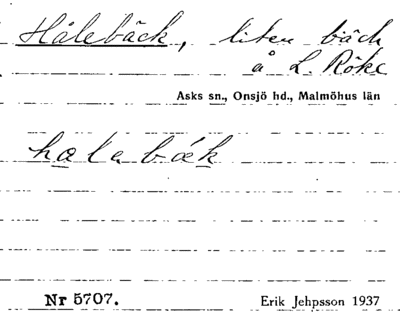 Hålebäck, liten bäck
å L. Röke
Asks sn., Onsjö hd., Malmöhus län
halabäk
Nr 5707.
Erik Jehpsson 1937